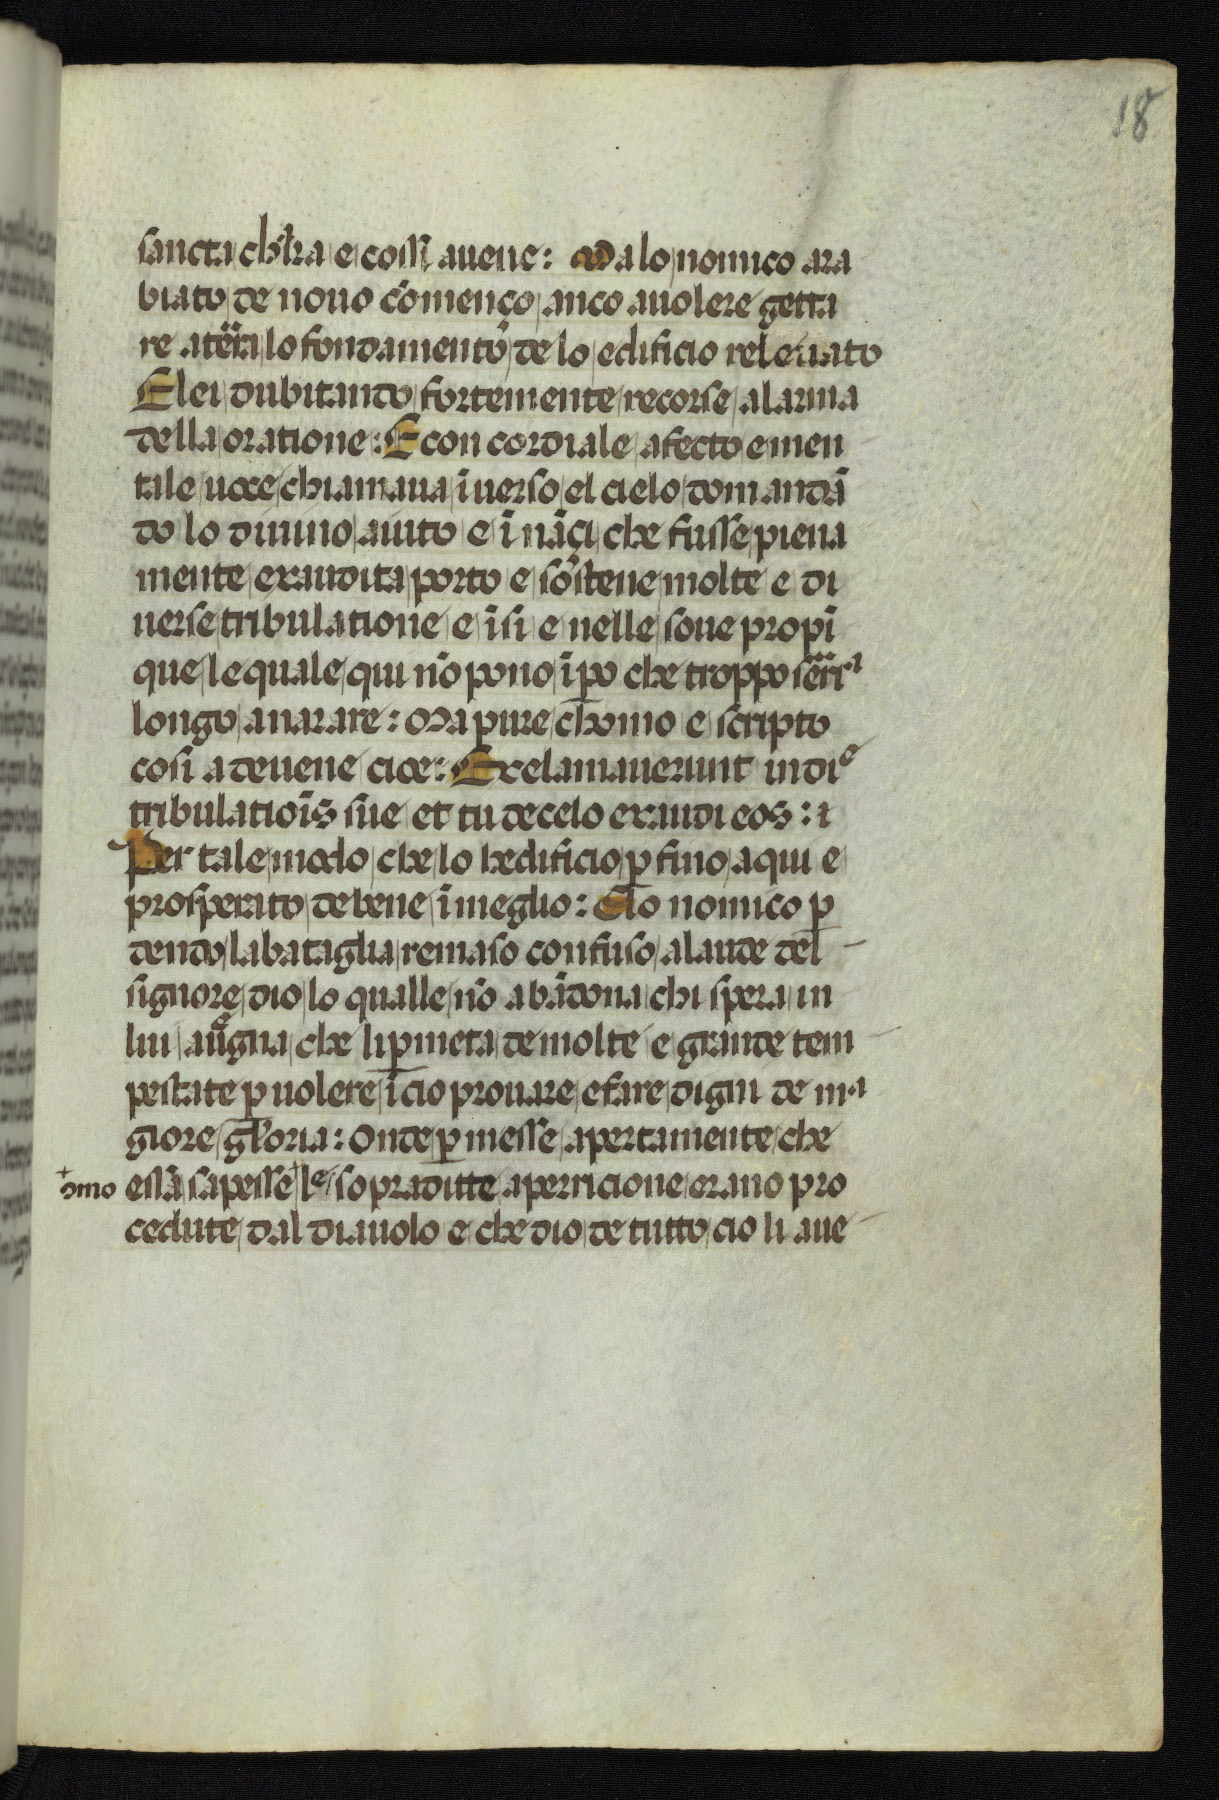 18
sancta chi͛ra e cossi auene: Ma lo nomico ara
biato de nouo cōmenço anco auolere getta
re aterͣa lo fondamento de lo edificio releuato
E lei dubitando fortemente recorse alarma
della oratione: E con cordiale afecto e men
tale uoce chiamaua īuerso el cielo domandā
do lo diuino aiuto e īnāçi che fusse piena
mente exaudita porto e sostene molte e di
uerse tribulatione e īsi e nelle soue propī
que le quale qui nō pono īpo che troppo serͣiͣ
longo anarare: Ma pure chomo e scripto
cosi adeuene cioe: Exclamauerunt in diᵉ
tribulatiōis sue et tu de celo exaudi eos: ⁊
Per tale modo che lo hedificio ꝑ fino aqui e
prosperato de bene ī meglio: E lo nomico ꝑ
dendo la bataglia remaso confuso alaude del
signore dio lo qualle nō abādona chi spera in
lui auͤgna che li ꝑmeta de molte e grande tem
pestate ꝑ uolere ī cio prouare e fare digni de mͣa
giore gloria: Onde ꝑmesse apertamente che
ꝯmo essa sapesse lᵉ sopraditte aperricione erano pro
cedute dal diauolo e che dio de tutto cio li aue